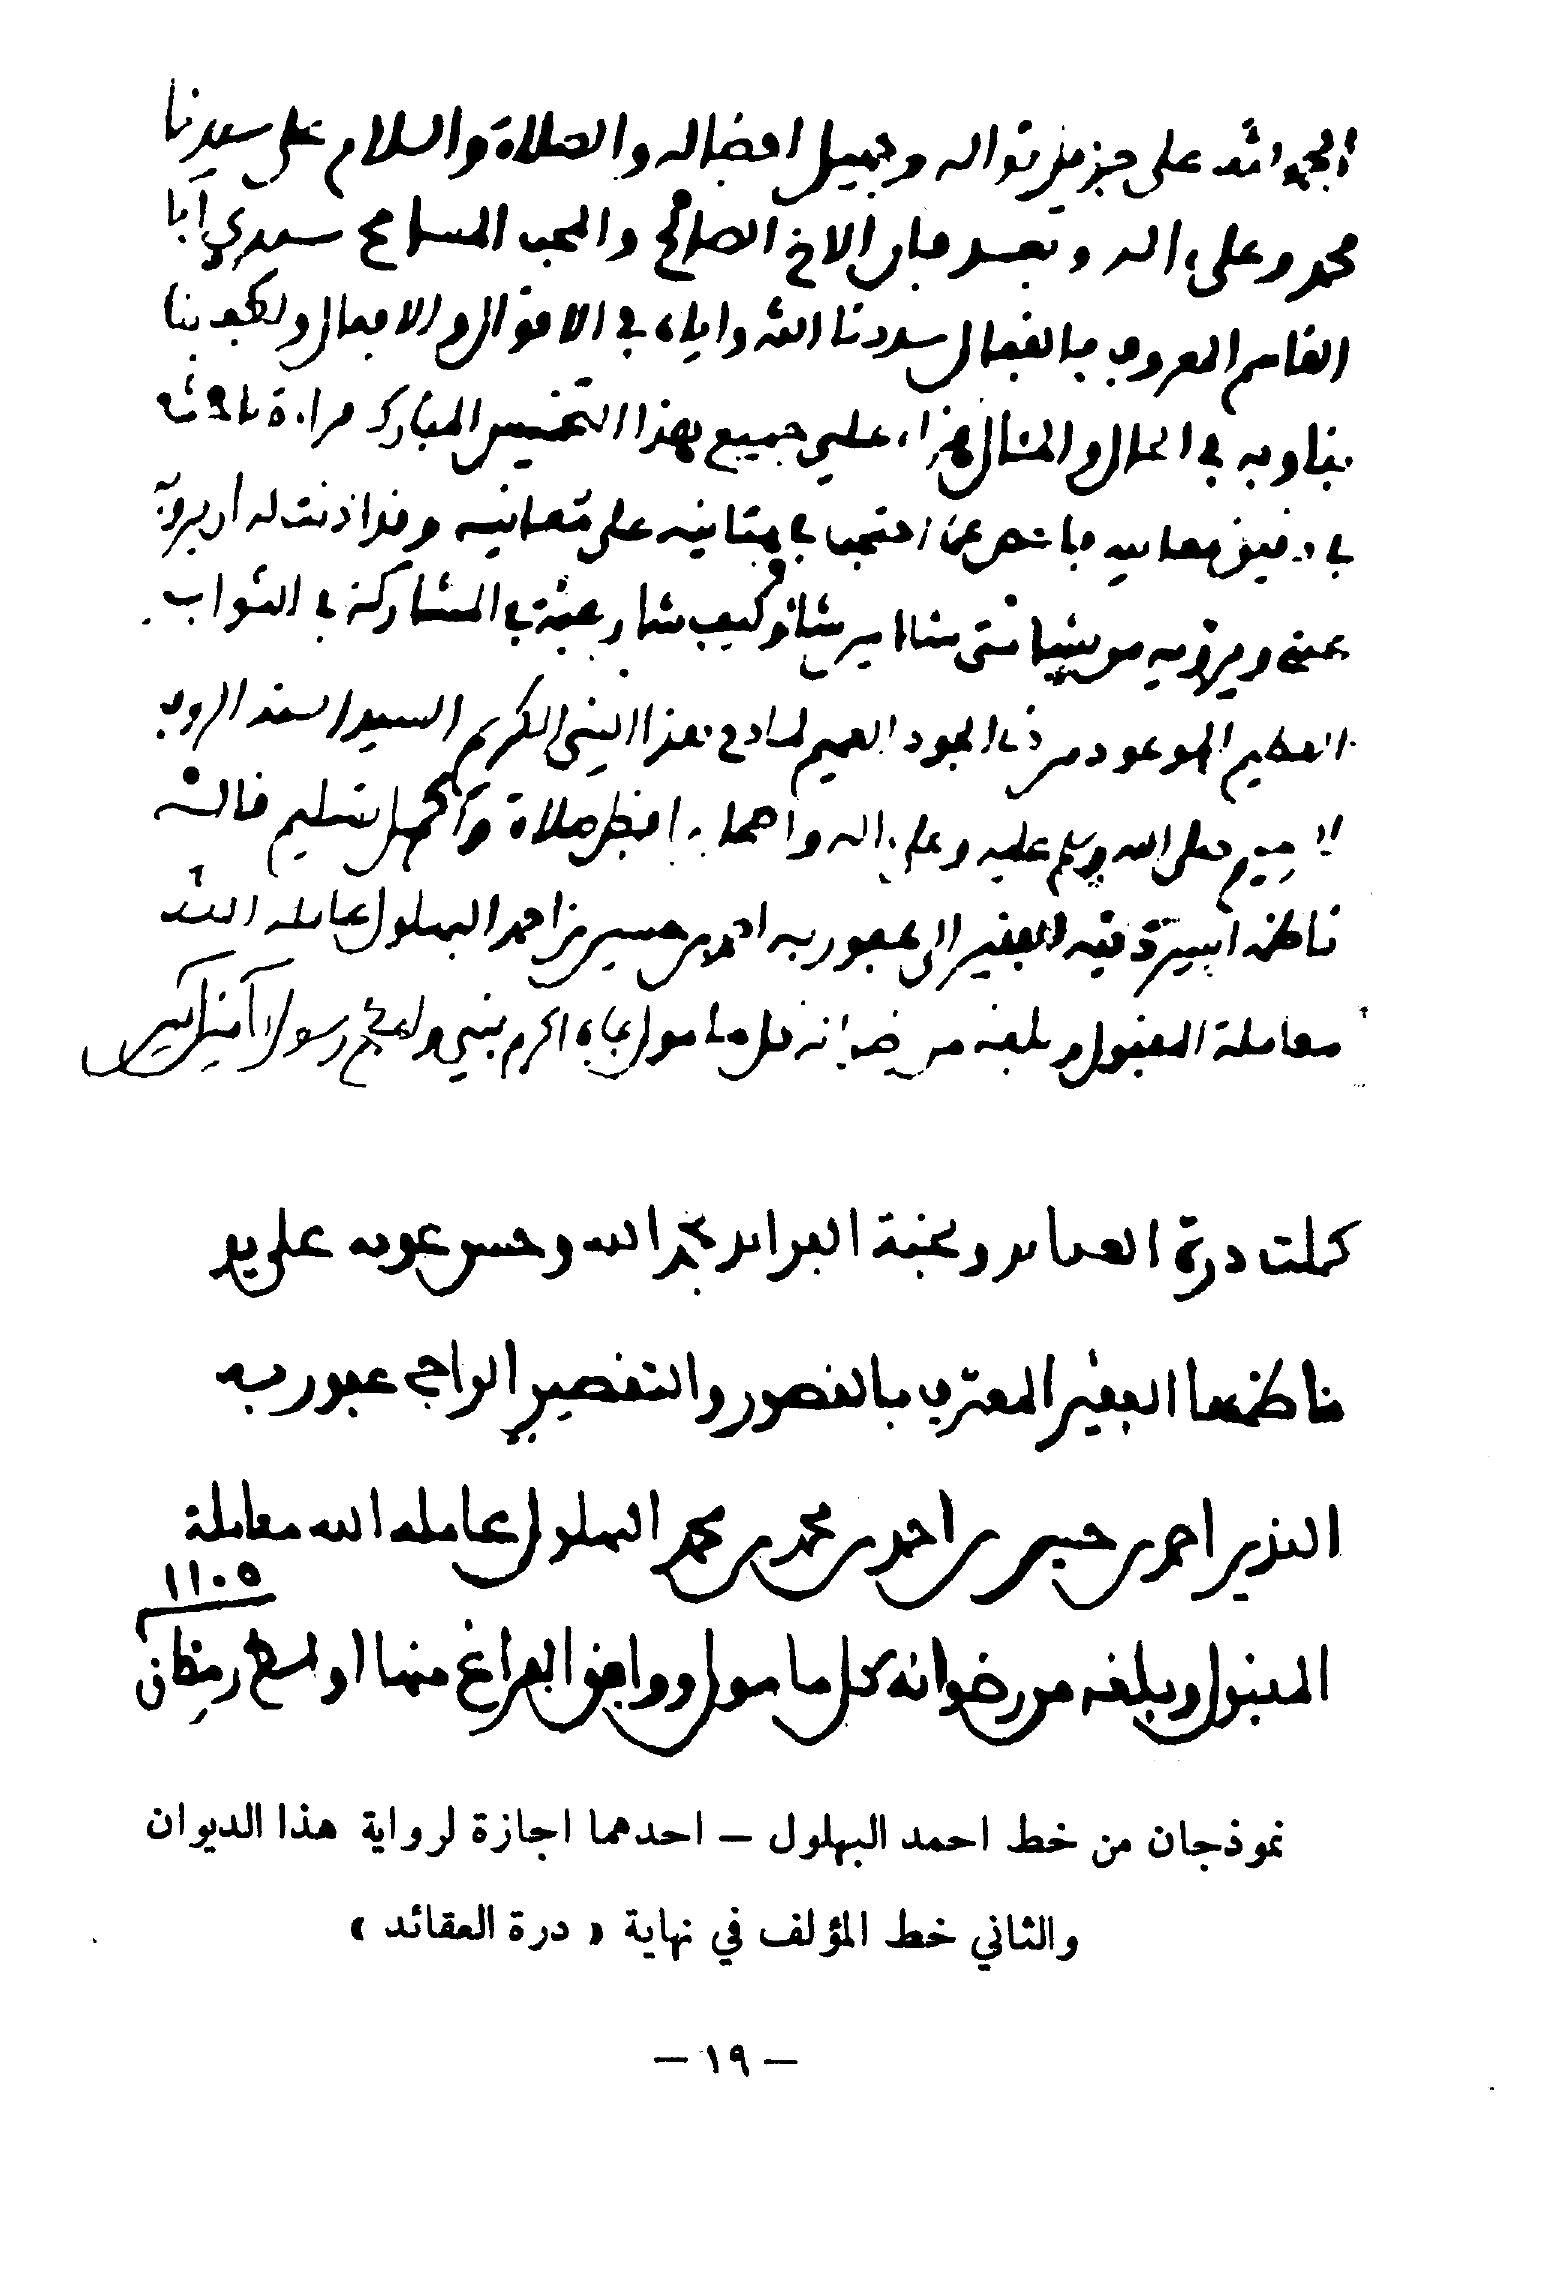 الحمد لله على جزيل نواله وجميل افضاله والصلاة والسلام على سيدنا
محمد وعلى اله وبعد فان الاخ الصالح والمحب المسامح سيدي أبا
القاسم المعروف بالفعال سددنا الله واياه في الاقوال والافعال ولطف بنا
وبه في الحال والمئال قرأ علي جميع هذا التخميس المبارك قراءة
في دقيق معانيه على معانيه وقد اذنت له ان يرويه
عني ويرويه من شا متى شا اين شا وكيف شا رغبة في المشاركة في الثواب
العظيم الموعود من ذي الجود العميم لمادح هذا النبي الكريم السيد السند الروف
الرحيم صلى الله وسلم عليه وعلى اله واصحابه افضل صلاة وأكمل تسليم قاله
ناظمه اسير ذنبه الفقير الى عفو ربه احمد بن حسين بن احمد البهلول عامله الله
معاملة المقبول وبلغه من رضوانه كل مامول بجاه اكرم نبي واعظم رسول آمين آمين
كملت درة العقائد ونخبة الفرائد بحمد الله وحسن عونه على يد
ناظمها الفقير المعترف بالقصور والتقصير الراجي عفو ربه
القدير احمد بن حسين بن احمد بن محمد بن محمد البهلول عامله الله معاملة
المقبول وبلغه من رضوانه كل مامول ووافق الفراغ منها اواسط رمضان
١١٠٥
نموذجان من خط احمد البهلول – احدهما اجازة لرواية هذا الديوان
والثاني خط المؤلف في نهاية « درة العقائد »
– ١٩ –